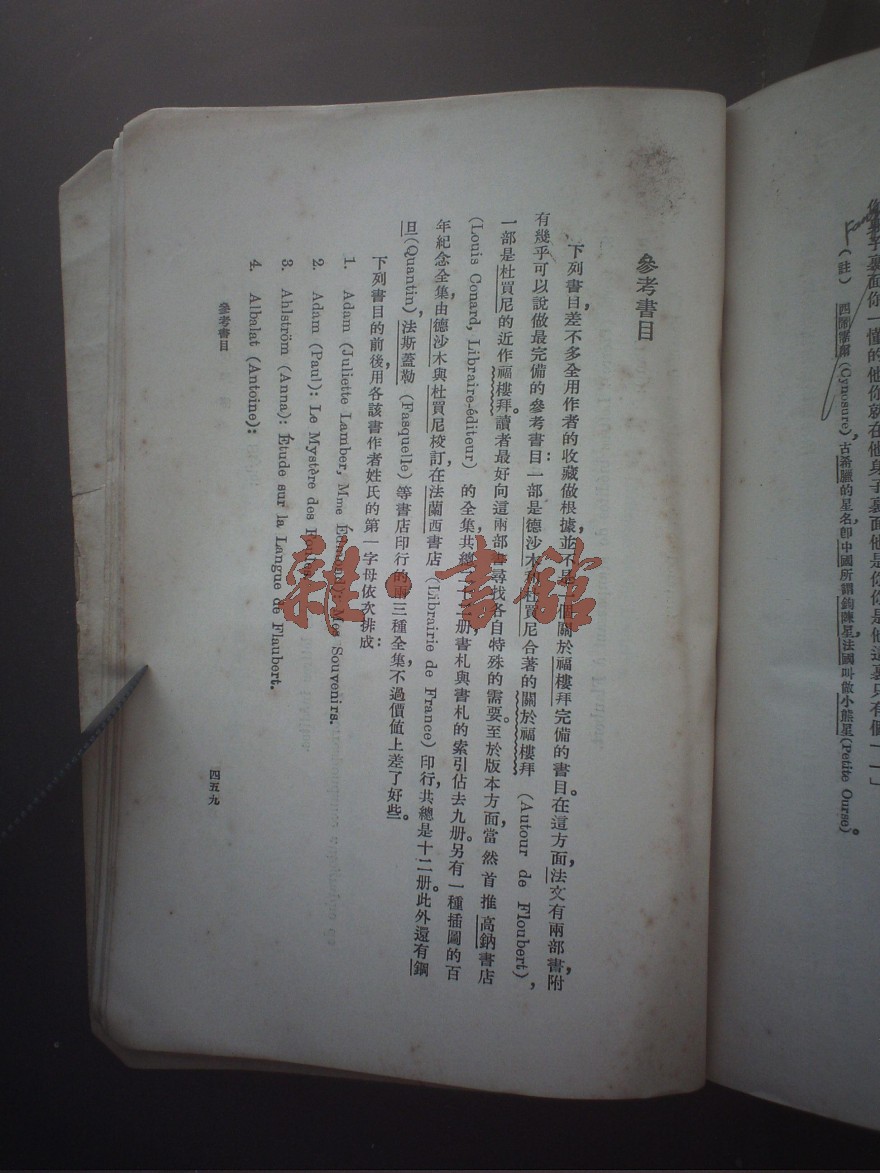 你幾乎裏面你一懂的他你就在他身子裏面他是你你是他這裏只有個一一」
(註) (Cynosure),古希臘的星名,卽中國所謂鉤陳星,法國叫做小熊星(Petite Ourse)。
參考書目
下列書目差不多全用作者的收藏做根據,並不是一個關於福樓拜完備的書目。在這方面,法文有兩部書,附
有幾乎可以說做最完備的參考書目:一部是德沙木和杜買尼合著的關於福樓拜 (Autour de Floubert),
一部是杜買尼的近作福樓拜。讀者最好向這兩部書尋找各自特殊的需要。至於版本方面,當然首推高鈉書店
(Louis Conard, Libraire-éditeur) 的全集,共總二十二册,書札與書札的索引佔去九册。另有一種插圖的百
年紀念全集,由德沙木與杜買尼校訂,在法蘭西書店 (Librairie de France) 印行,共總是十二册。此外還有鋼
旦(Quantin),法斯蓋勒 (Fasquelle) 等書店印行的兩三種全集,不過價値上差了好些。
下列書目的前後,用各該書作者姓氏的第一字母依次排成:
1. Adam (Juliette Lamber, Mme Édmond): Mes Souvenirs.
2. Adam (Paul): Le Mystère des Foules.
3. Ahlström (Anna): Étude sur la Langue de Flaubert.
4. Albalat (Antoine):
參考書目
四五九
雜·書館